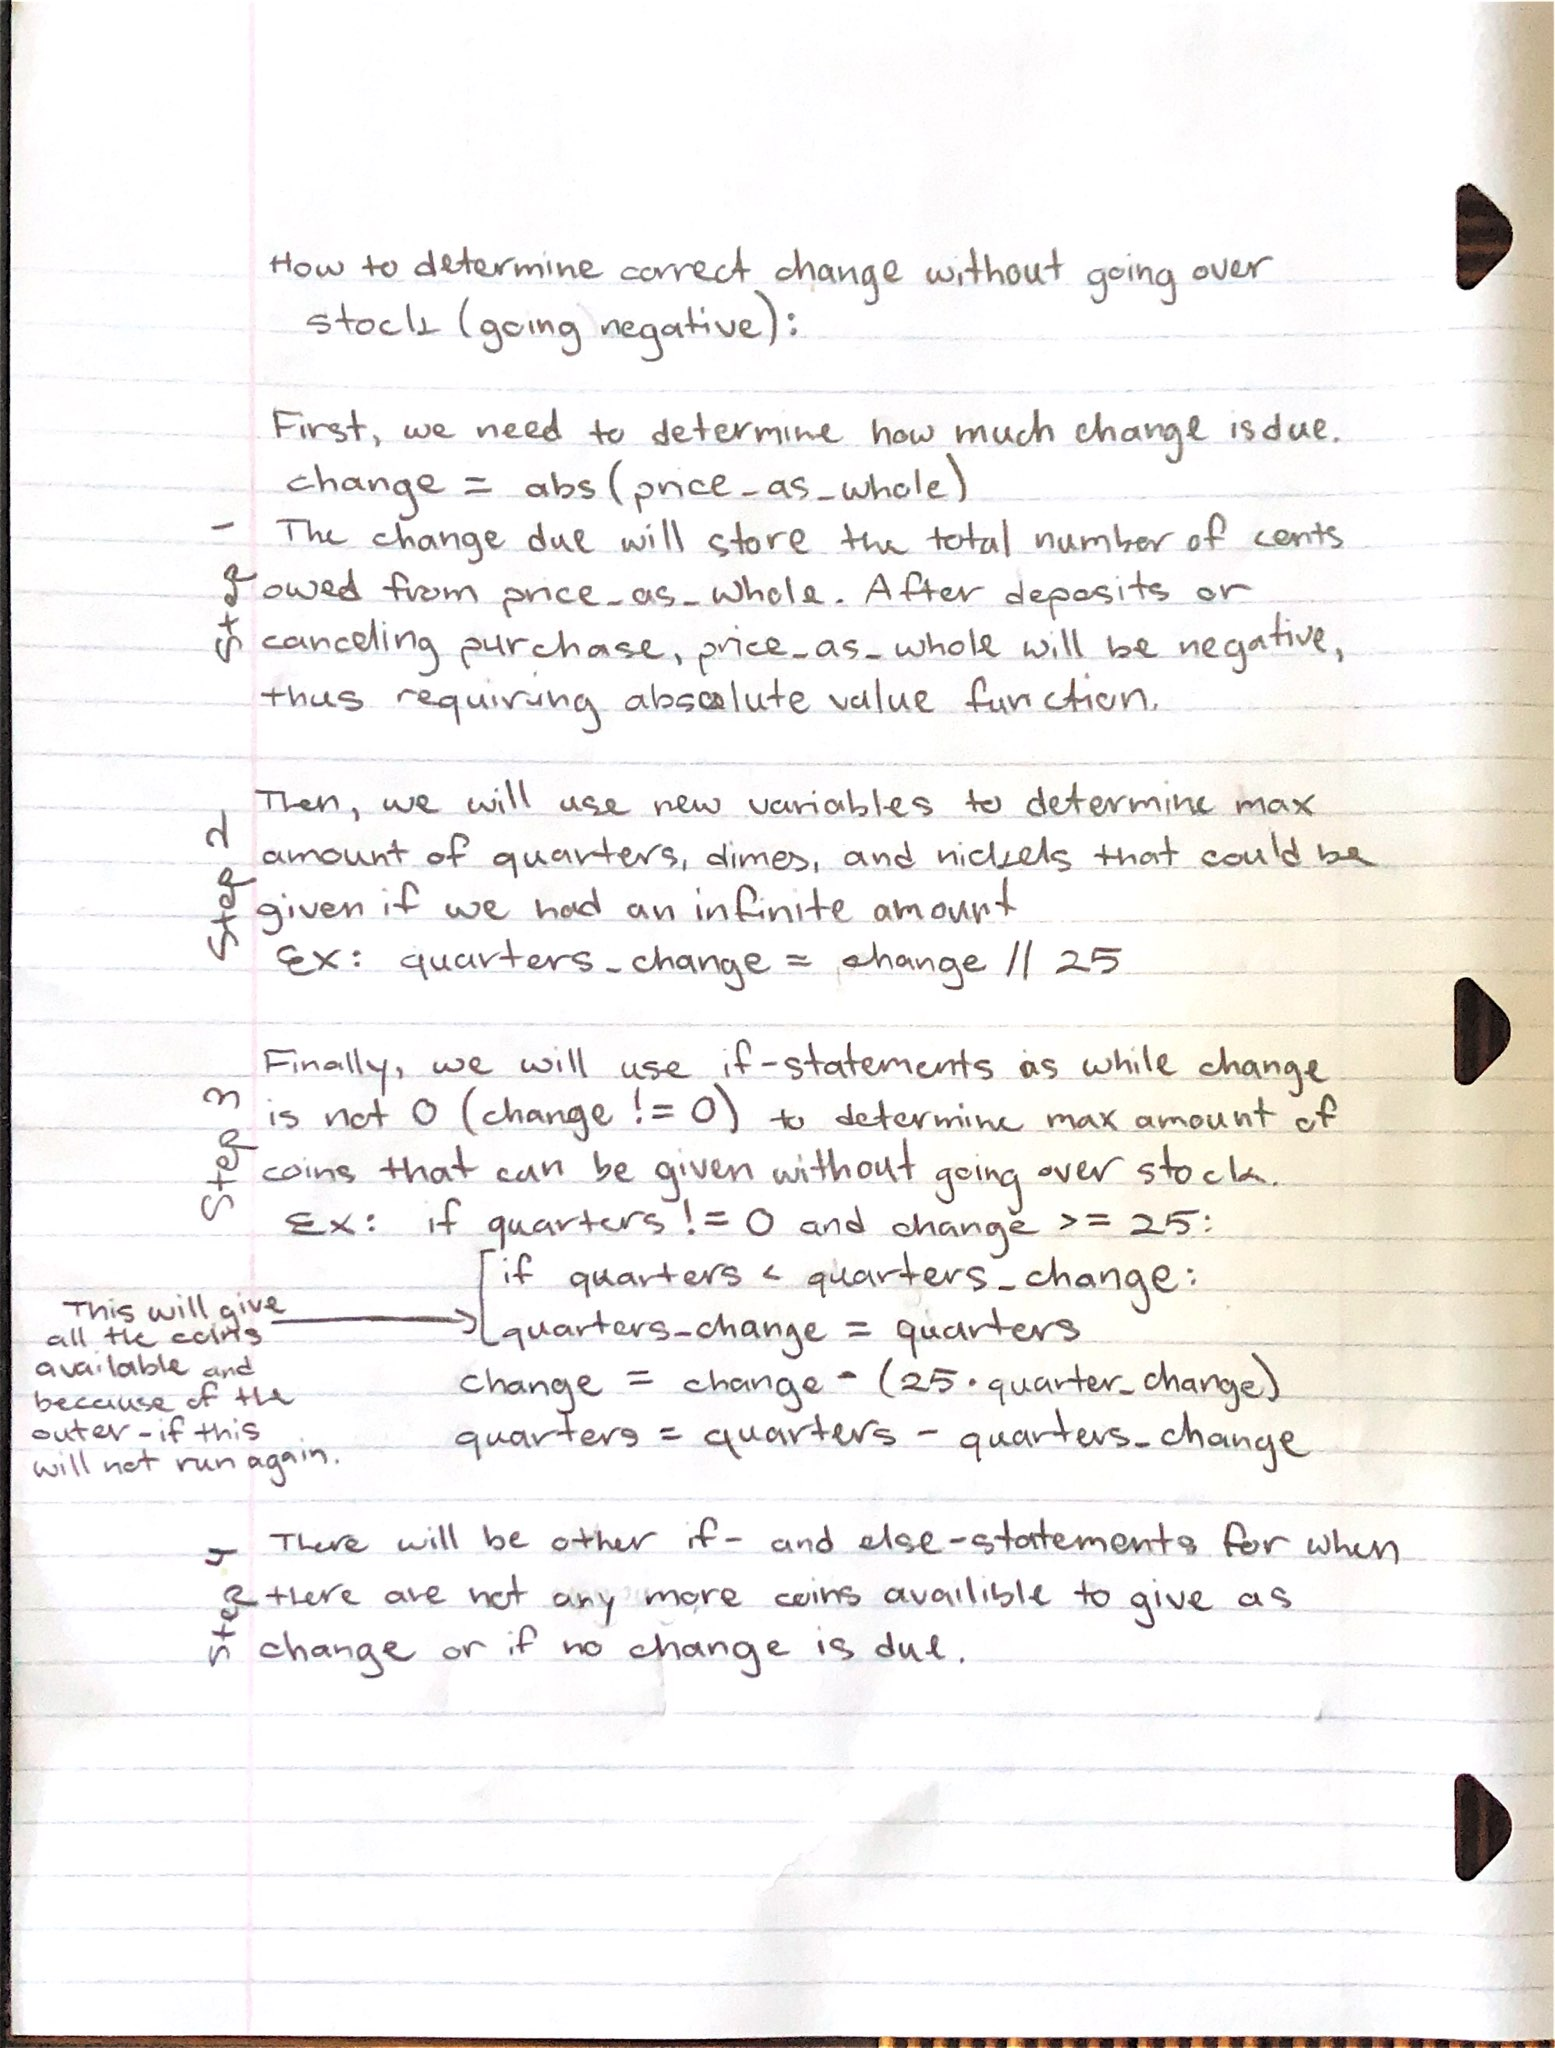 How to determine correct change without going over
stock (going negative):
First, we need to determine how much change is due.
change = abs(price_as_whole)
Step 1
The change due will store the total number of cents
owed from price_as_whole. After deposits or
canceling purchase, price_as_whole will be negative,
thus requiring absolute value function.
Step 2
Then, we will use new variables to determine max
amount of quarters, dimes, and nickels that could be
given if we had an infinite amount
Ex: quarters_change = change // 25
Step 3
Finally, we will use if-statements as while change
is not 0 (change != 0) to determine max amount of
coins that can be given without going over stock.
Ex: if quarters != 0 and change >= 25:
if quarters < quarters_change:
quarters_change = quarters
change = change - (25 · quarter_change)
quarters = quarters - quarters_change
This will give
all the coins
available and
because of the
outer-if this
will not run again.
Step 4
There will be other if- and else-statements for when
there are not any more coins availible to give as
change or if no change is due.